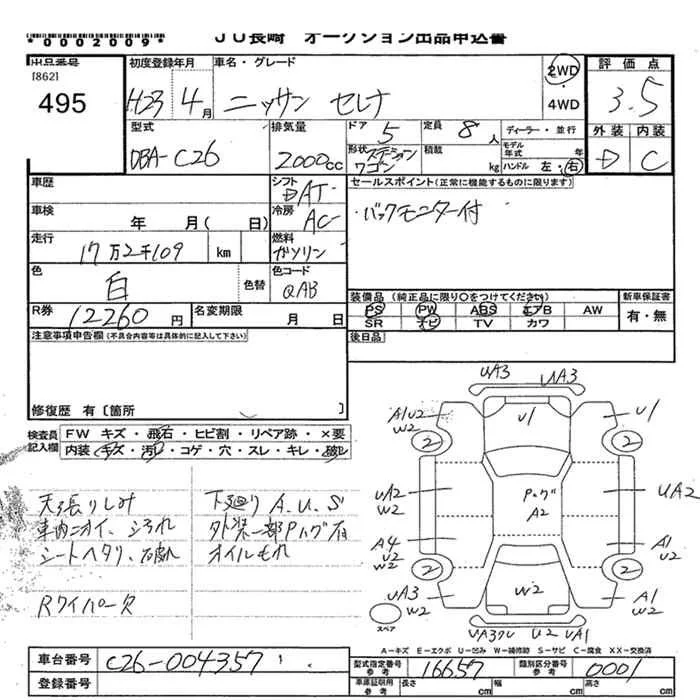 *0002009*
JU長崎 オークション出品申込書
出品番号
[862]
495
初度登録年月
H23 4月
車名・グレード
ニッサン セレナ
2WD
4WD
評価点
3.5
外装 内装
D C
型式
DBA-C26
排気量
2000cc
ドア
5
定員
8人
形状
ステーション
ワゴン
積載
kg
ディーラー・並行
モデル年式 年
ハンドル 左・右
車歴
シフト
DAT
車検
年 月( 日)
冷房
AC
走行
17万2千109 km
燃料
ガソリン
色
白
色替
色コード
QAB
R券
12260円
名変期限
月 日
セールスポイント(正常に機能するものに限ります)
・バックモニター付
装備品(純正品に限り○をつけてください)
新車保証書
PS PW ABS エアB AW
SR ナビ TV カワ
有・無
後日品
注意事項申告欄(不具合内容等は具体的に記入して下さい)
修復歴 有〔箇所 〕
検査員
記入欄
FW キズ・飛石・ヒビ割・リペア跡・×要
内装・キズ・汚レ・コゲ・穴・スレ・キレ・破レ
天張りしみ
車内ニオイ、シヨれ
シートヘタリ、破れ
Rワイパー欠
下廻り A.U.S
外装一部Pハゲ有
オイルもれ
UA3 UA3
A1U2
W2
U1
U1
2
2
UA2
W2
Pハゲ
A2
UA2
A4
U2
W2
A1
U2
W2
2
2
UA3
W2
W2
A1
W2
スペア
UA3ワレ U2 UA1
A−キズ E−エクボ U−凹み W−補修跡 S−サビ C−腐食 XX−交換済
車台番号
C26-004357
登録番号
型式指定番号
参考
16657
類別区分番号
参考
0001
車庫証明用
参考
長さ cm
幅 cm
高さ cm